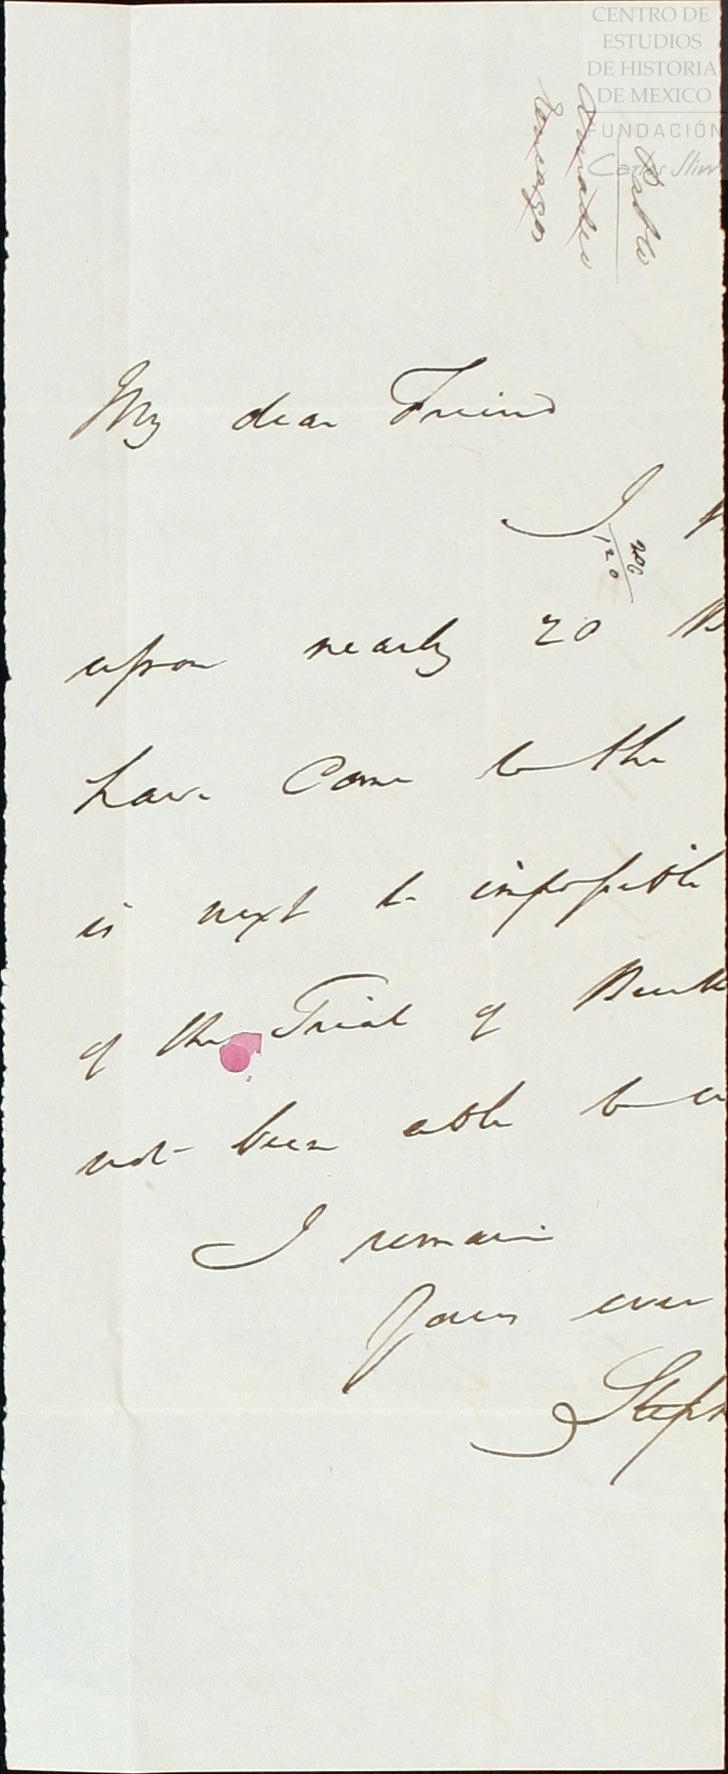 CENTRO DE
ESTUDIOS
DE HISTORIA
DE MEXICO
FUNDACIÓN
Carlos Slim
My dear Friend
I
120
upon nearly 20
have come to the
is next to impossible
of the Trial of
not been able to
I remain
Yours ever
Steph